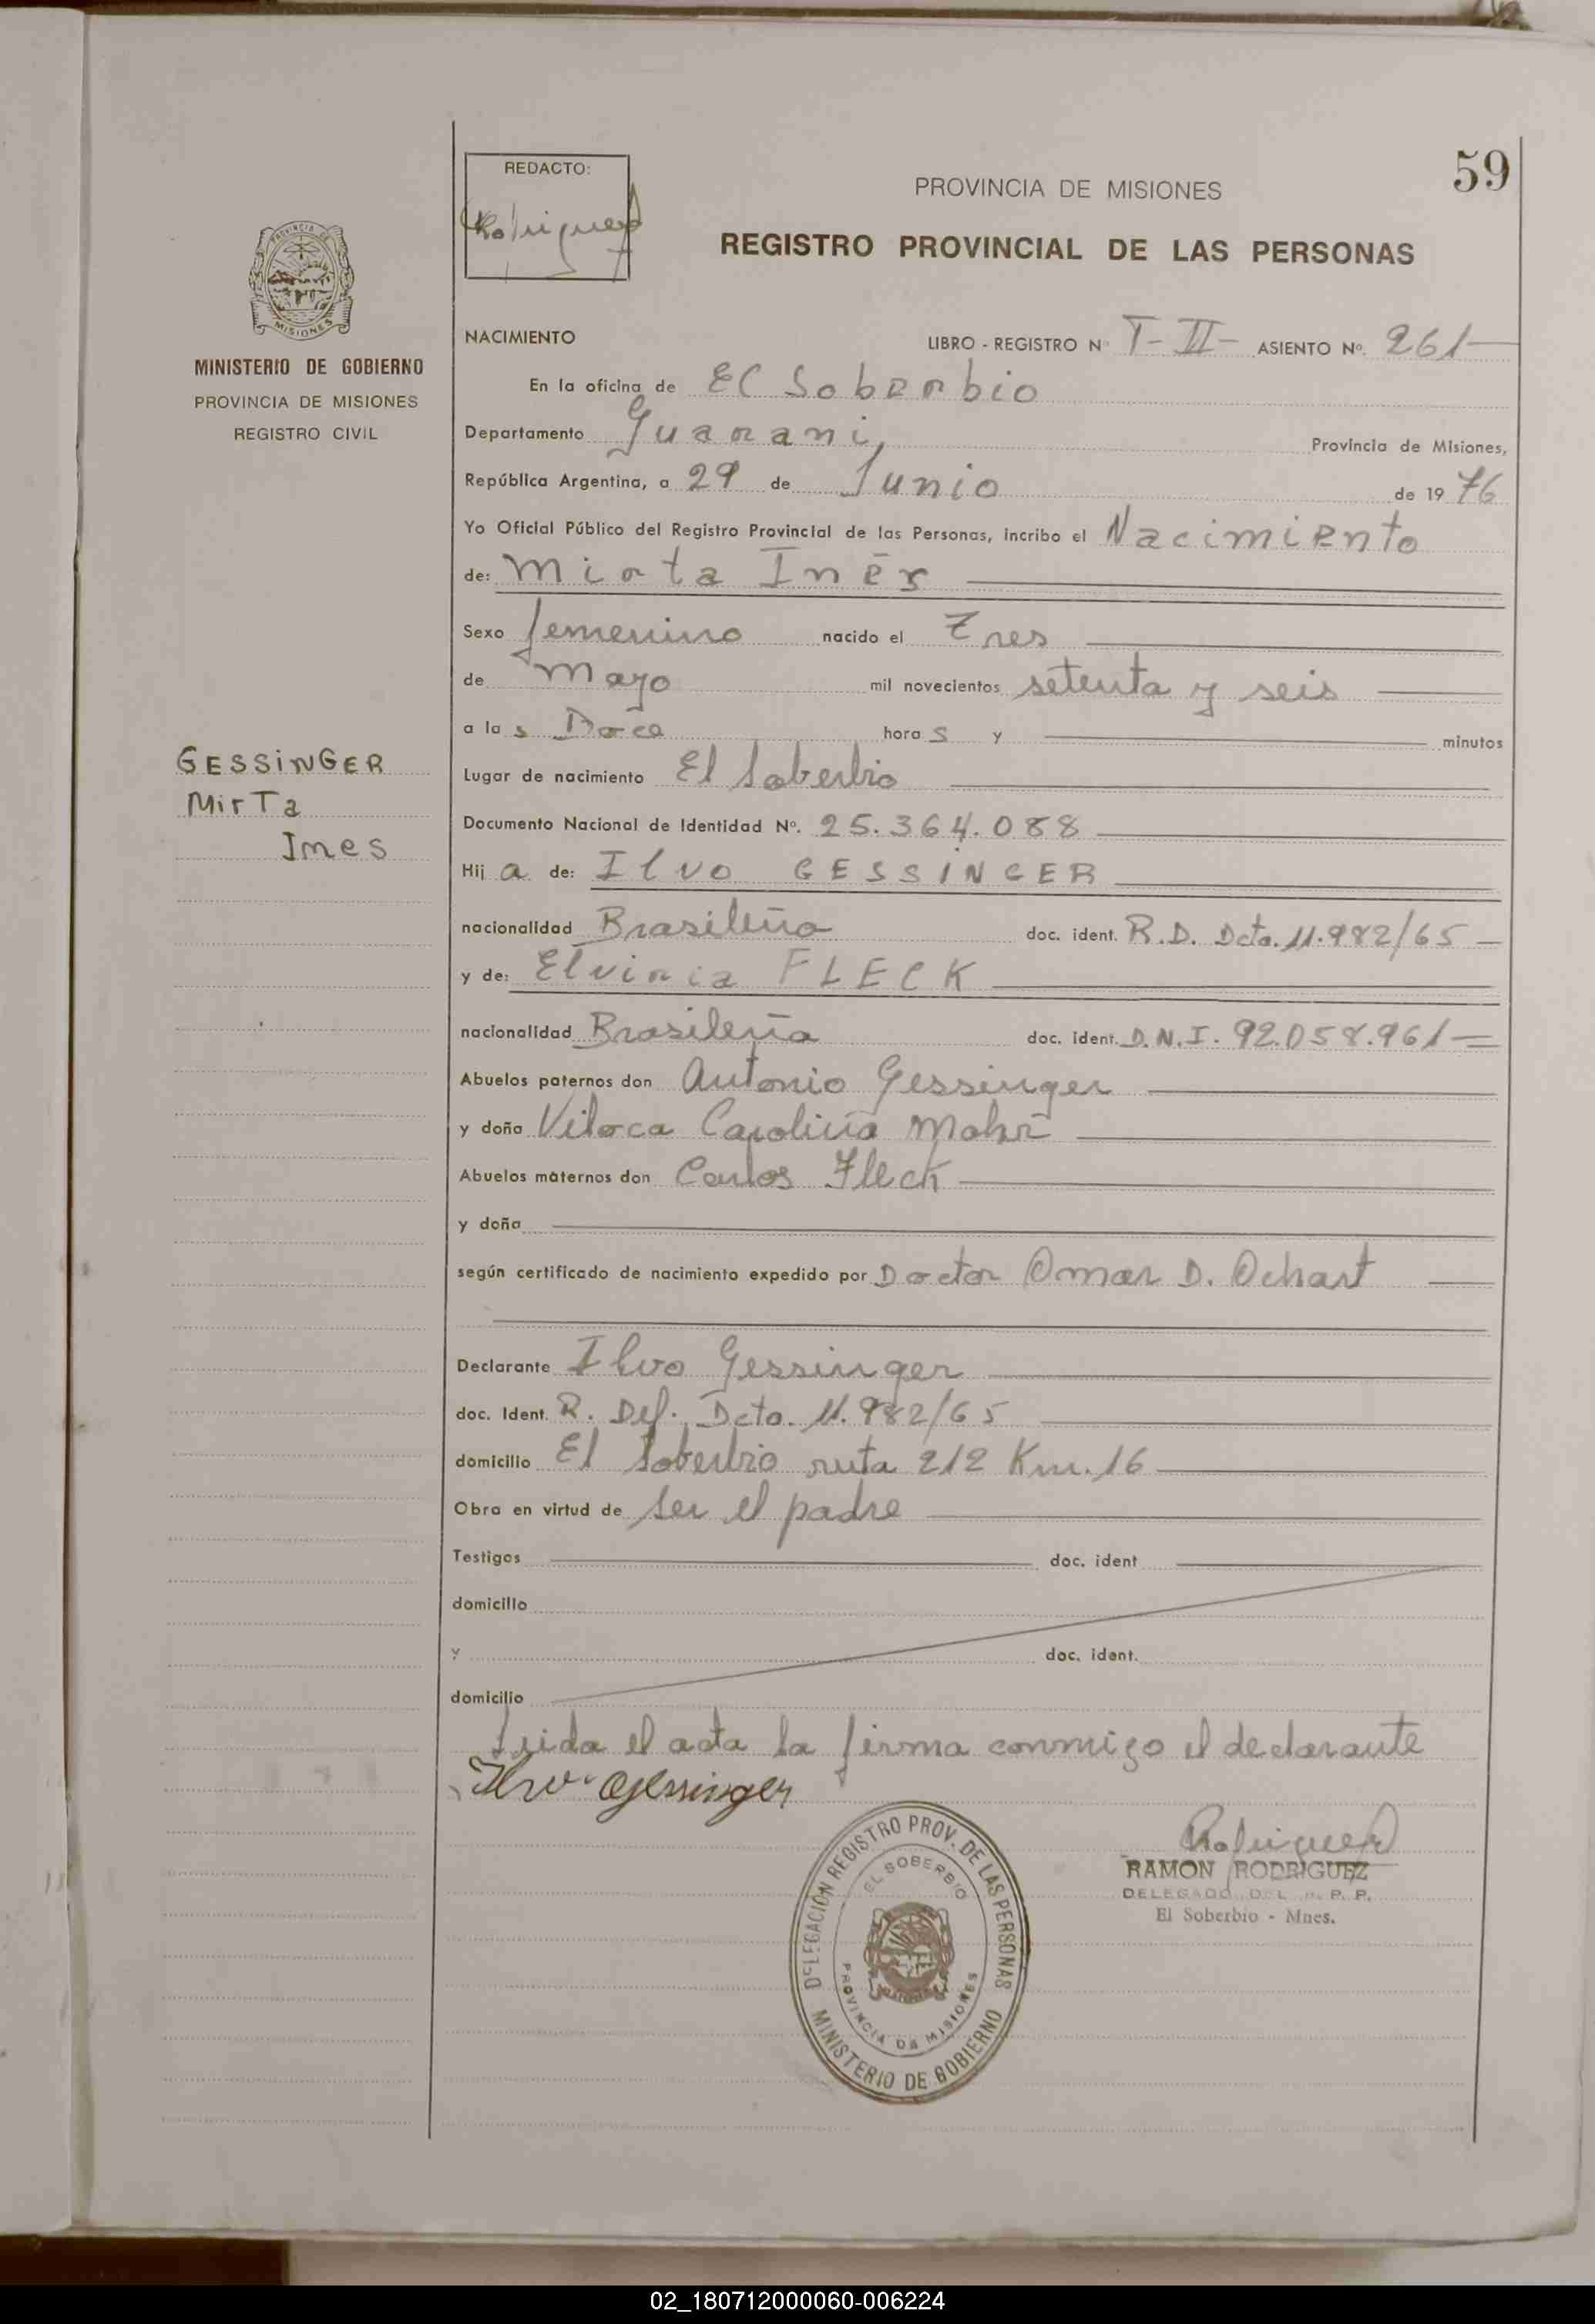 59
REDACTO:
Rodriguez
PROVINCIA DE MISIONES
REGISTRO PROVINCIAL DE LAS PERSONAS
PROVINCIA DE
MISIONES
MINISTERIO DE GOBIERNO
PROVINCIA DE MISIONES
REGISTRO CIVIL
GESSiNGER
MirTa
Ines
NACIMIENTO LIBRO - REGISTRO Nº T-II- ASIENTO Nº. 261
En la oficina de El Soberbio
Departamento Guarani, Provincia de Misiones,
República Argentina, a 29 de Junio de 1976
Yo Oficial Público del Registro Provincial de las Personas, incribo el Nacimiento
de: Mirta Inés
Sexo femenino nacido el Tres
de Mayo mil novecientos setenta y seis
a las Doce horas y minutos
Lugar de nacimiento El Soberbio
Documento Nacional de Identidad Nº. 25.364.088
Hija de: Ilvo GESSINGER
nacionalidad Brasileña doc. ident. R.D. Dcto. 11.982/65
y de: Elviria FLECK
nacionalidad Brasileña doc. ident. D.N.I. 92.058.961
Abuelos paternos don Antonio Gessinger
y doña Carolina
Abuelos maternos don Carlos Fleck
y doña
según certificado de nacimiento expedido por Doctor Omar D. Ochart
Declarante Ilvo Gessinger
doc. Ident. R. Def. Dcto. 11.982/65
domicilio El Soberbio ruta 212 Km. 16
Obra en virtud de ser el padre
Testigos doc. ident
domicilio
y doc. ident.
domicilio
Leida el acta la firma conmigo el declarante
Ilvo Gessinger
Rodriguez
RAMON RODRIGUEZ
DELEGADO DEL R. P. P.
El Soberbio - Mnes.
DELEGACIÓN REGISTRO PROV. DE LAS PERSONAS
EL SOBERBIO
PROVINCIA DE MISIONES
MINISTERIO DE GOBIERNO
02_180712000060-006224